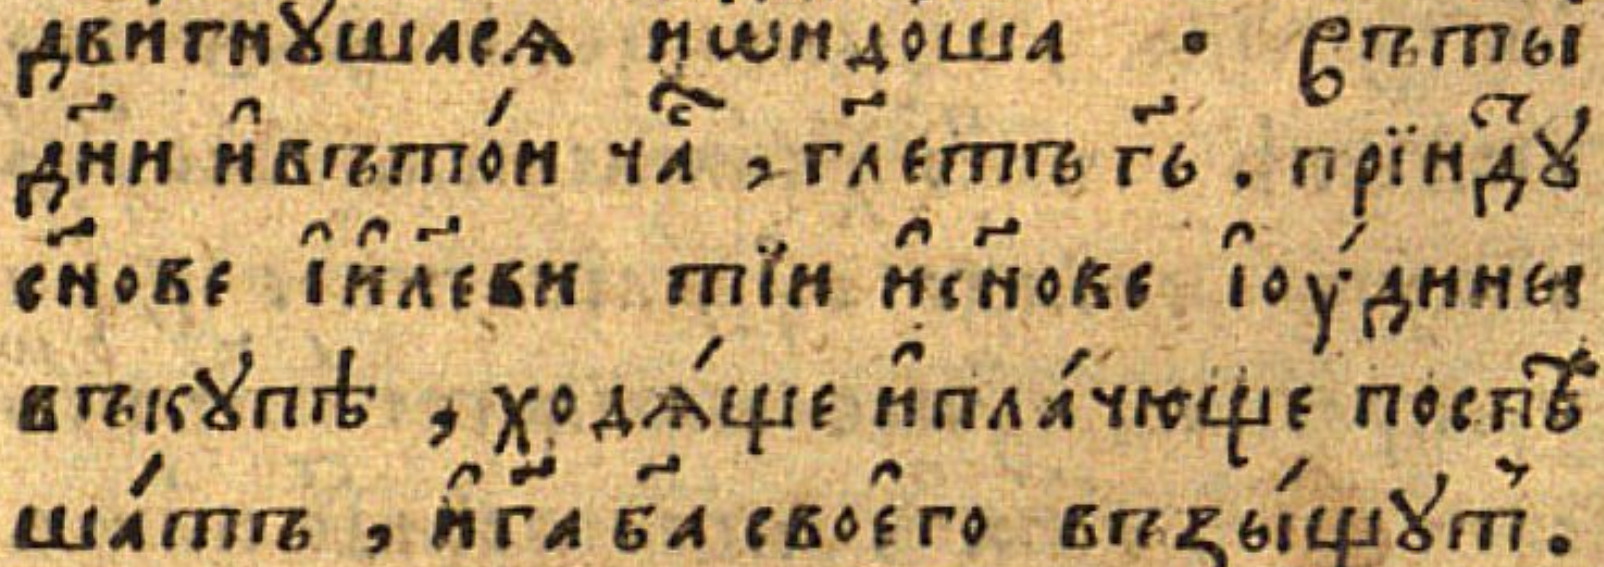 двигнꙋшасѧ иѡидоша . Въты
дн҃и и҆въто́и ча҇ , гл҃етъ гь҃ . прїидꙋ҇
сн҃ове і҆и҆л҃еви тїи и҆сн҃ове і҆оу́дины
въкꙋпѣ , ходѧ́ще и҆пла́чюще поспѣ
ша́тъ , и҆га҃ ба҃ своє҆го възы́щꙋт̾ .